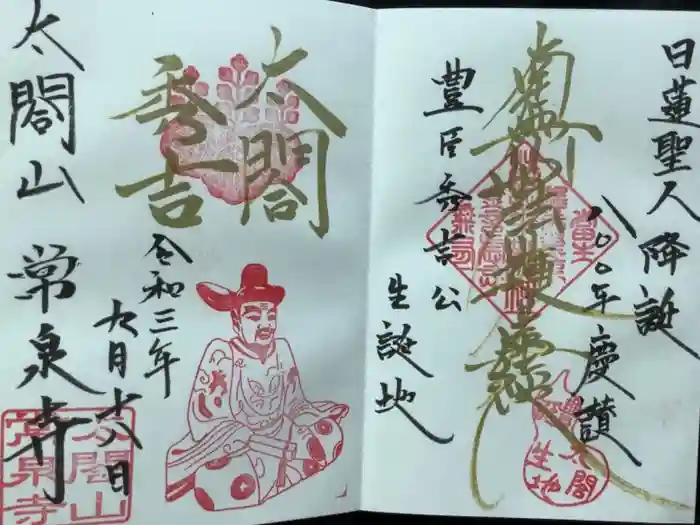 日蓮聖人降誕
八〇〇年慶讃
南無妙法蓮華経
豊臣秀吉公
生誕地
豊太閤
生地
太閤
秀吉
令和三年
九月十六日
太閤山 常泉寺
太閤山
常泉寺